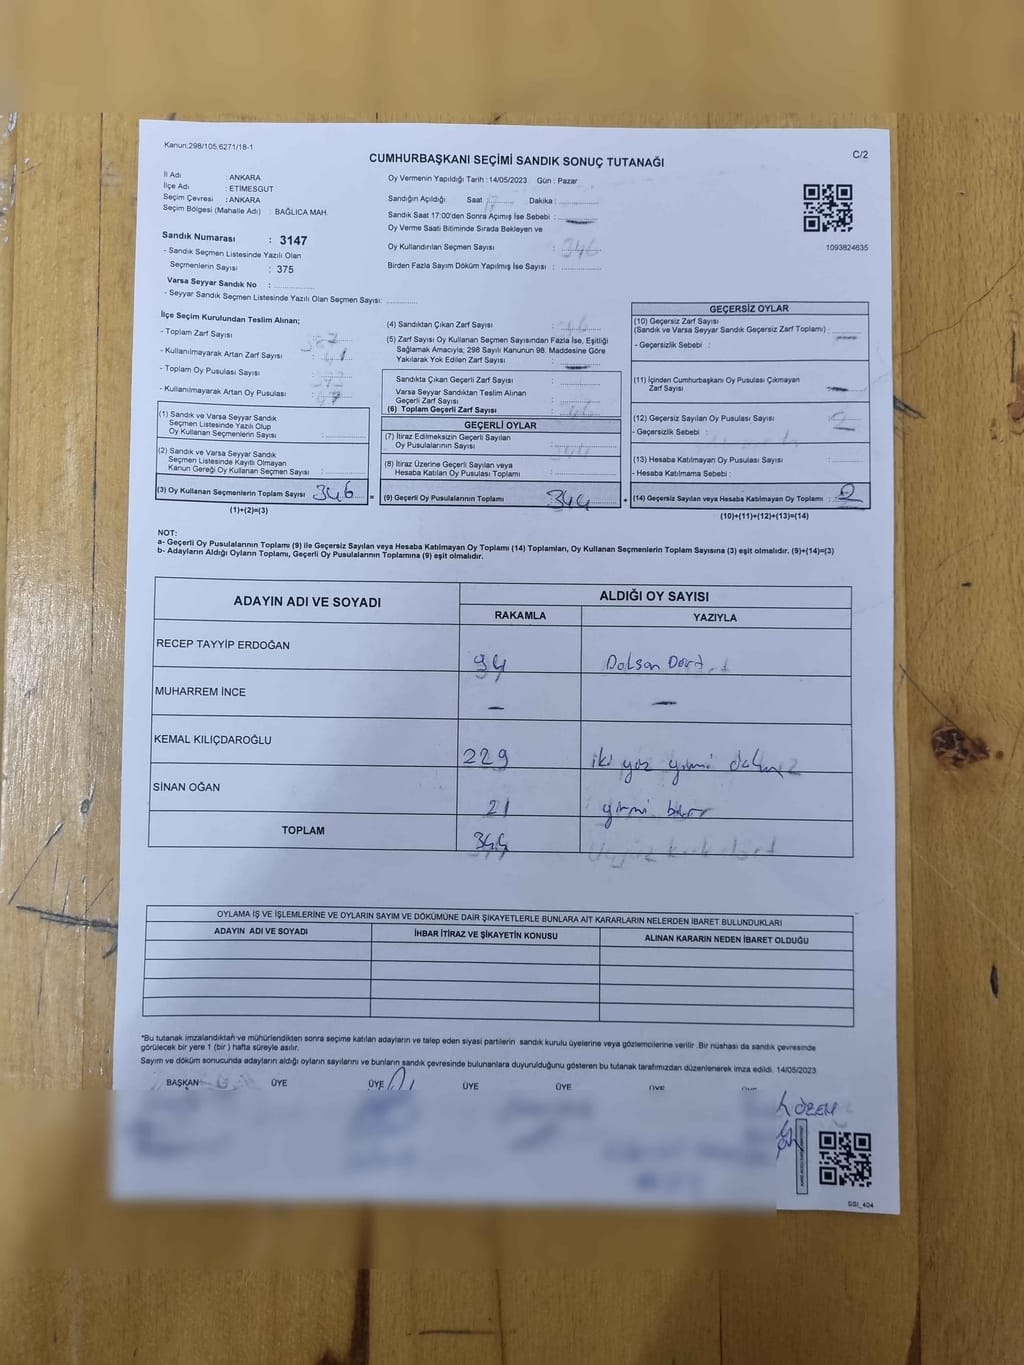 Kanun;298/105;6271/18-1
C/2
CUMHURBAŞKANI SEÇİMİ SANDIK SONUÇ TUTANAĞI
İl Adı : ANKARA
İlçe Adı : ETİMESGUT
Seçim Çevresi : ANKARA
Seçim Bölgesi (Mahalle Adı) : BAĞLICA MAH.
Sandık Numarası : 3147
- Sandık Seçmen Listesinde Yazılı Olan
Seçmenlerin Sayısı : 375
Varsa Seyyar Sandık No :
- Seyyar Sandık Seçmen Listesinde Yazılı Olan Seçmen Sayısı:
Oy Vermenin Yapıldığı Tarih : 14/05/2023 Gün : Pazar
Sandığın Açıldığı Saat 17 Dakika :
Sandık Saat 17:00'den Sonra Açımış İse Sebebi : —
Oy Verme Saati Bitiminde Sırada Bekleyen ve
Oy Kullandırılan Seçmen Sayısı : 346
Birden Fazla Sayım Döküm Yapılmış İse Sayısı :
1093824635
İlçe Seçim Kurulundan Teslim Alınan;
- Toplam Zarf Sayısı
- Kullanılmayarak Artan Zarf Sayısı :
- Toplam Oy Pusulası Sayısı :
- Kullanılmayarak Artan Oy Pusulası :
(1) Sandık ve Varsa Seyyar Sandık
Seçmen Listesinde Yazılı Olup
Oy Kullanan Seçmenlerin Sayısı :
(2) Sandık ve Varsa Seyyar Sandık
Seçmen Listesinde Kayıtlı Olmayan
Kanun Gereği Oy Kullanan Seçmen Sayısı :
(3) Oy Kullanan Seçmenlerin Toplam Sayısı 346 =
(1)+(2)=(3)
(4) Sandıktan Çıkan Zarf Sayısı :
(5) Zarf Sayısı Oy Kullanan Seçmen Sayısından Fazla İse, Eşitliği
Sağlamak Amacıyla; 298 Sayılı Kanunun 98. Maddesine Göre
Yakılarak Yok Edilen Zarf Sayısı : —
Sandıkta Çıkan Geçerli Zarf Sayısı :
Varsa Seyyar Sandıktan Teslim Alınan
Geçerli Zarf Sayısı :
(6) Toplam Geçerli Zarf Sayısı :
GEÇERLİ OYLAR
(7) İtiraz Edilmeksizin Geçerli Sayılan
Oy Pusulalarının Sayısı :
(8) İtiraz Üzerine Geçerli Sayılan veya
Hesaba Katılan Oy Pusulası Toplamı :
(9) Geçerli Oy Pusulalarının Toplamı 344 +
GEÇERSİZ OYLAR
(10) Geçersiz Zarf Sayısı
(Sandık ve Varsa Seyyar Sandık Geçersiz Zarf Toplamı) :
- Geçersizlik Sebebi : —
(11) İçinden Cumhurbaşkanı Oy Pusulası Çıkmayan
Zarf Sayısı : —
(12) Geçersiz Sayılan Oy Pusulası Sayısı : 2
- Geçersizlik Sebebi :
(13) Hesaba Katılmayan Oy Pusulası Sayısı :
- Hesaba Katılmama Sebebi :
(14) Geçersiz Sayılan veya Hesaba Katılmayan Oy Toplamı : 2
(10)+(11)+(12)+(13)=(14)
NOT:
a- Geçerli Oy Pusulalarının Toplamı (9) ile Geçersiz Sayılan veya Hesaba Katılmayan Oy Toplamı (14) Toplamları, Oy Kullanan Seçmenlerin Toplam Sayısına (3) eşit olmalıdır. (9)+(14)=(3)
b- Adayların Aldığı Oyların Toplamı, Geçerli Oy Pusulalarının Toplamına (9) eşit olmalıdır.
ADAYIN ADI VE SOYADI ALDIĞI OY SAYISI
RAKAMLA YAZIYLA
RECEP TAYYİP ERDOĞAN 94 Doksan Dört
MUHARREM İNCE — —
KEMAL KILIÇDAROĞLU 229 iki yüz yirmi dokuz
SİNAN OĞAN 21 yirmi bir
TOPLAM 344 Üçyüz kırk dört
OYLAMA İŞ VE İŞLEMLERİNE VE OYLARIN SAYIM VE DÖKÜMÜNE DAİR ŞİKAYETLERLE BUNLARA AİT KARARLARIN NELERDEN İBARET BULUNDUKLARI
ADAYIN ADI VE SOYADI İHBAR İTİRAZ VE ŞİKAYETİN KONUSU ALINAN KARARIN NEDEN İBARET OLDUĞU
*Bu tutanak imzalandıktan ve mühürlendikten sonra seçime katılan adayların ve talep eden siyasi partilerin sandık kurulu üyelerine veya gözlemcilerine verilir .Bir nüshası da sandık çevresinde
görülecek bir yere 1 (bir ) hafta süreyle asılır.
Sayım ve döküm sonucunda adayların aldığı oyların sayılarını ve bunların sandık çevresinde bulunanlara duyurulduğunu gösteren bu tutanak tarafımızdan düzenlenerek imza edildi. 14/05/2023
BAŞKAN ÜYE ÜYE ÜYE ÜYE ÜYE ÜYE
ÖZEN
SSI_404